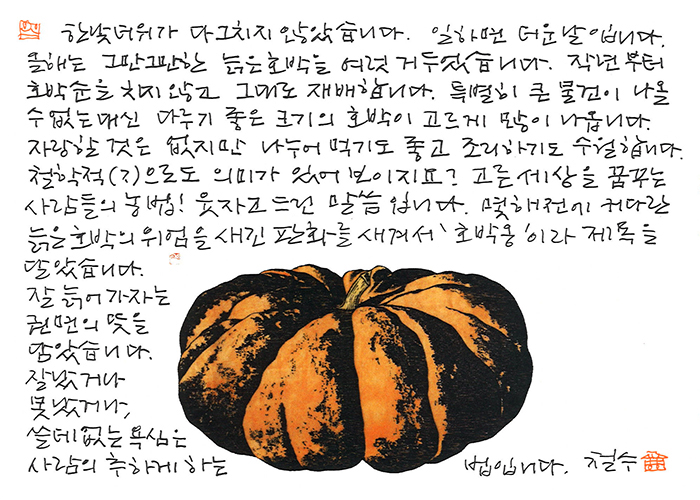 한낮 더위가 다 그치지 않았습니다. 일하면 더운 날입니다.
올해는 그만그만한 늙은 호박을 여럿 거두었습니다. 작년부터
호박순을 치지 않고 그대로 재배합니다. 특별히 큰 물건이 나올
수 없는 대신 다루기 좋은 크기의 호박이 고르게 많이 나옵니다.
자랑할 것은 없지만 나누어 먹기도 좋고 조리하기도 수월합니다.
철학적(?)으로도 의미가 있어 보이지요? 고른 세상을 꿈꾸는
사람들의 농법! 웃자고 드린 말씀입니다. 몇 해 전에 커다란
늙은 호박의 위엄을 새긴 판화를 새겨서 '호박옹'이라 제목을
달았습니다.
잘 늙어가자는
권면의 뜻을
담았습니다.
잘났거나
못났거나,
쓸데없는 욕심은
사람의 추하게 하는 법입니다. 철수